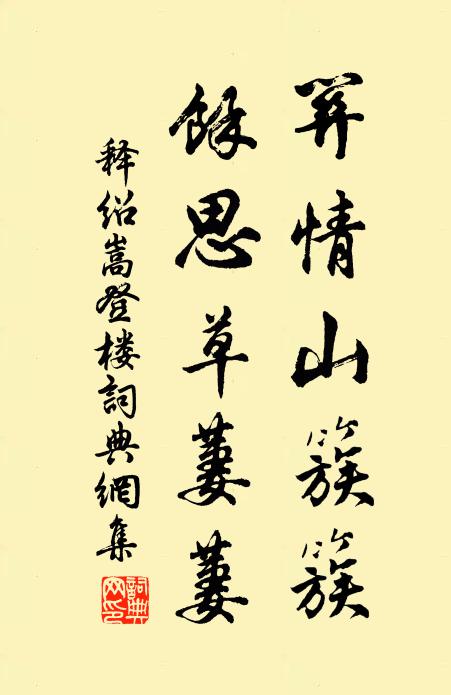 情山簇簇
餘思草萋萋
释绍嵩登楼詞典網集